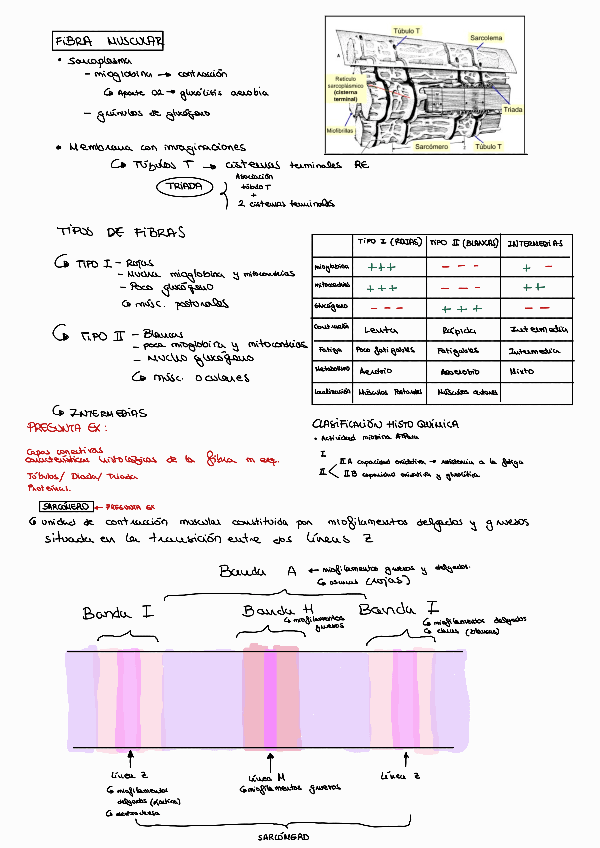 FIBRA MUSCULAR
• Sarcoplasma
– mioglobina → contracción
↳ Aporte O2 → glucólisis aerobia
– gránulos de glucógeno
• Membrana con invaginaciones
↳ Túbulos T → cisternas terminales RE
TRÍADA
Asociación
túbulo T
+
2 cisternas terminales
Túbulo T
Sarcolema
Retículo
sarcoplásmico
(cisterna
terminal)
Triada
Miofibrillas
Sarcómero
Túbulo T
TIPOS DE FIBRAS
↳ TIPO I – Rojas
– Mucha mioglobina y mitocondrias
– Poco glucógeno
↳ músc. posturales
↳ TIPO II – Blancas
– poca mioglobina y mitocondrias
– MUCHO glucógeno
↳ músc. oculares
↳ INTERMEDIAS
TIPO I (ROJAS) TIPO II (BLANCAS) INTERMEDIAS
mioglobina +++ - - - + -
mitocondrias +++ - - - ++
Glucógeno - - - +++ - -
Contracción Lenta Rápida Intermedia
Fatiga Poco fatigables Fatigables Intermedia
Metabolismo Aerobio Anaerobio Mixto
Localización Músculos Posturales Músculos oculares
PREGUNTA EX:
Capas conectivas
características histológicas de la fibra m esq.
Túbulos/ Diada/ Triada
Proteínas.
CLASIFICACIÓN HISTOQUÍMICA
• Actividad miosina ATPasa
I
II
II A capacidad oxidativa → resistencia a la fatiga
II B capacidad oxidativa y glucolítica
SARCÓMERO ← PREGUNTA EX
↳ unidad de contracción muscular constituida por miofilamentos delgados y gruesos
situada en la transición entre dos líneas Z
Banda A ← miofilamentos gruesos y delgados.
↳ oscuras (rojas)
Banda I
Banda H
↳ miofilamentos
gruesos
Banda I
↳ miofilamentos delgados
↳ claras (blancas)
Línea Z
↳ miofilamentos
delgados (actina)
Línea M
↳ miofilamentos gruesos
Línea Z
SARCÓMERO